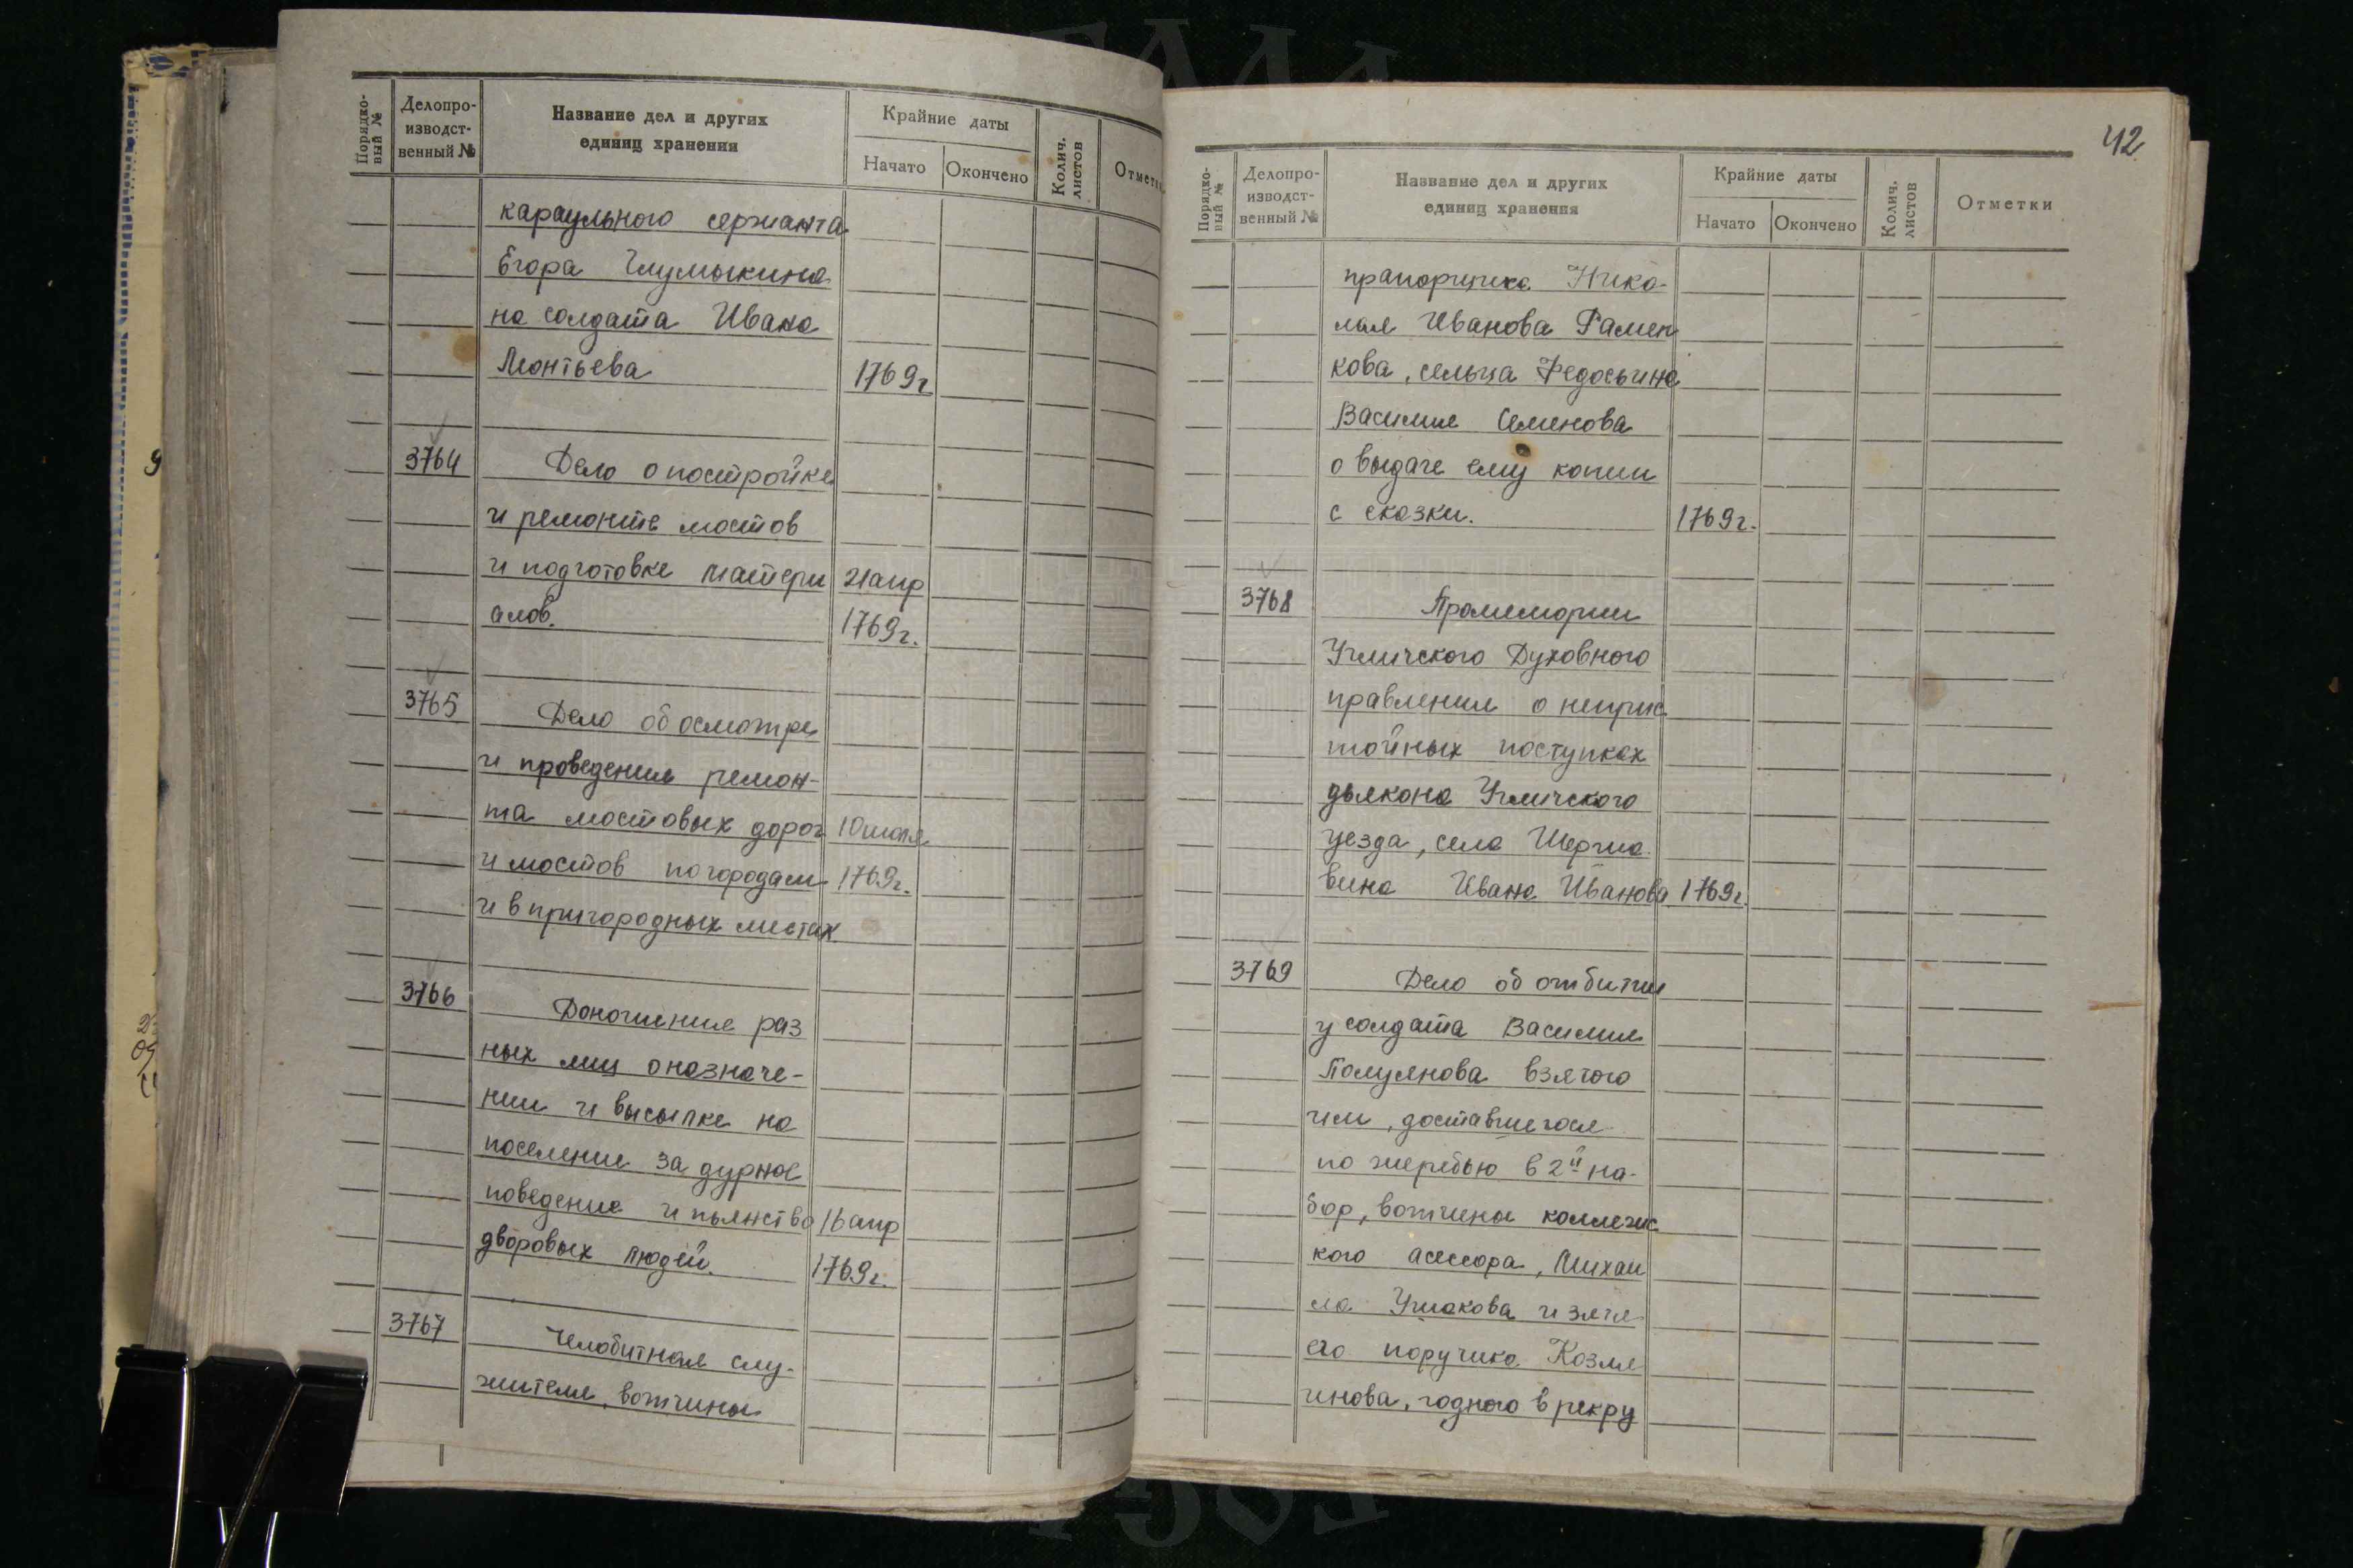 Порядко-
вый №
Делопро-
изводст-
венный №
Название дел и других
единиц хранения
Крайние даты
Начато
Окончено
Колич.
листов
Отметки
караульного сержанта
Егора Глумыкина
на солдата Ивана
Леонтьева 1769г
3764 Дело о постройке
и ремонте мостов
и подготовке матери 21апр
алов. 1769г.
3765 Дело об осмотре
и проведении ремон-
та мостовых дорог 10июля
и мостов по городам 1769г.
и в пригородных местах
3766 Доношения раз
ных лиц о назначе-
нии и высылке на
поселение за дурное
поведение и пьянство 16апр
дворовых людей. 1769г.
3767 Челобитная слу-
жителя, вотчины
42
Порядко-
вый №
Делопро-
изводст-
венный №
Название дел и других
единиц хранения
Крайние даты
Начато
Окончено
Колич.
листов
Отметки
прапорщика Нико-
лая Иванова Рамен
кова, сельца Федосьина
Василия Семенова
о выдаче ему копии
с сказки. 1769г.
3768 Промемории
Угличского Духовного
правления о неприс
тойных поступках
дьякона Угличского
уезда, села Шерма
вина Ивана Иванова 1769г.
3769 Дело об отбитии
у солдата Василия
Полуянова взятого
им, доставшегося
по жеребью в 2й на-
бор, вотчины коллежс
кого асессора, Михаи
ла Ушакова и зятя
его поручика Козля
инова, годного в рекру